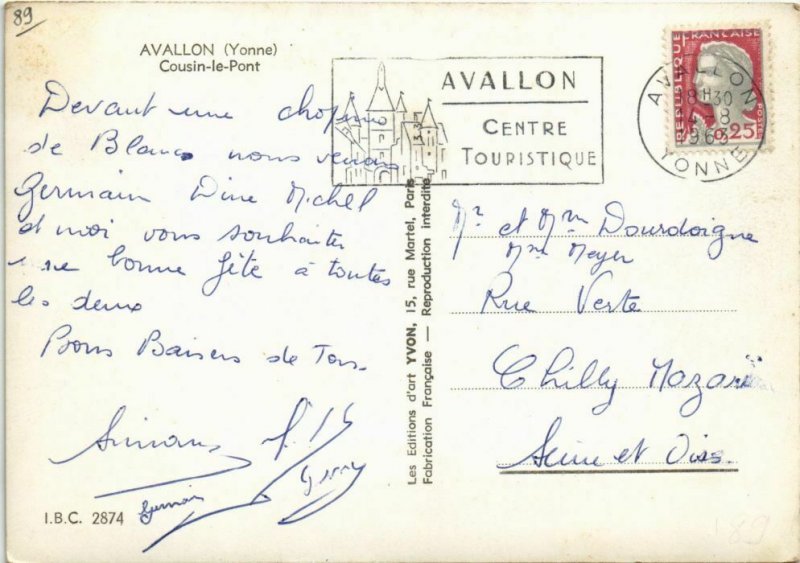 89
AVALLON (Yonne)
Cousin-le-Pont
Devant une chopine
de Blanc nous venons
Germain Dine Michel
et moi vous souhaiter
une bonne fête à toutes
les deux
Bons Baisers de Tous
Germain
I.B.C. 2874
AVALLON
CENTRE
TOURISTIQUE
REPUBLIQUE FRANÇAISE
0,25
POSTES
AVALLON
18H30
-8
1963
YONNE
Les Editions d'art YVON, 15, rue Martel, Paris
Fabrication Française — Reproduction interdite
Mr et Mme Dourdoigne
Mme Meyer
Rue Verte
Chilly Mazarin
Seine et Oise
89